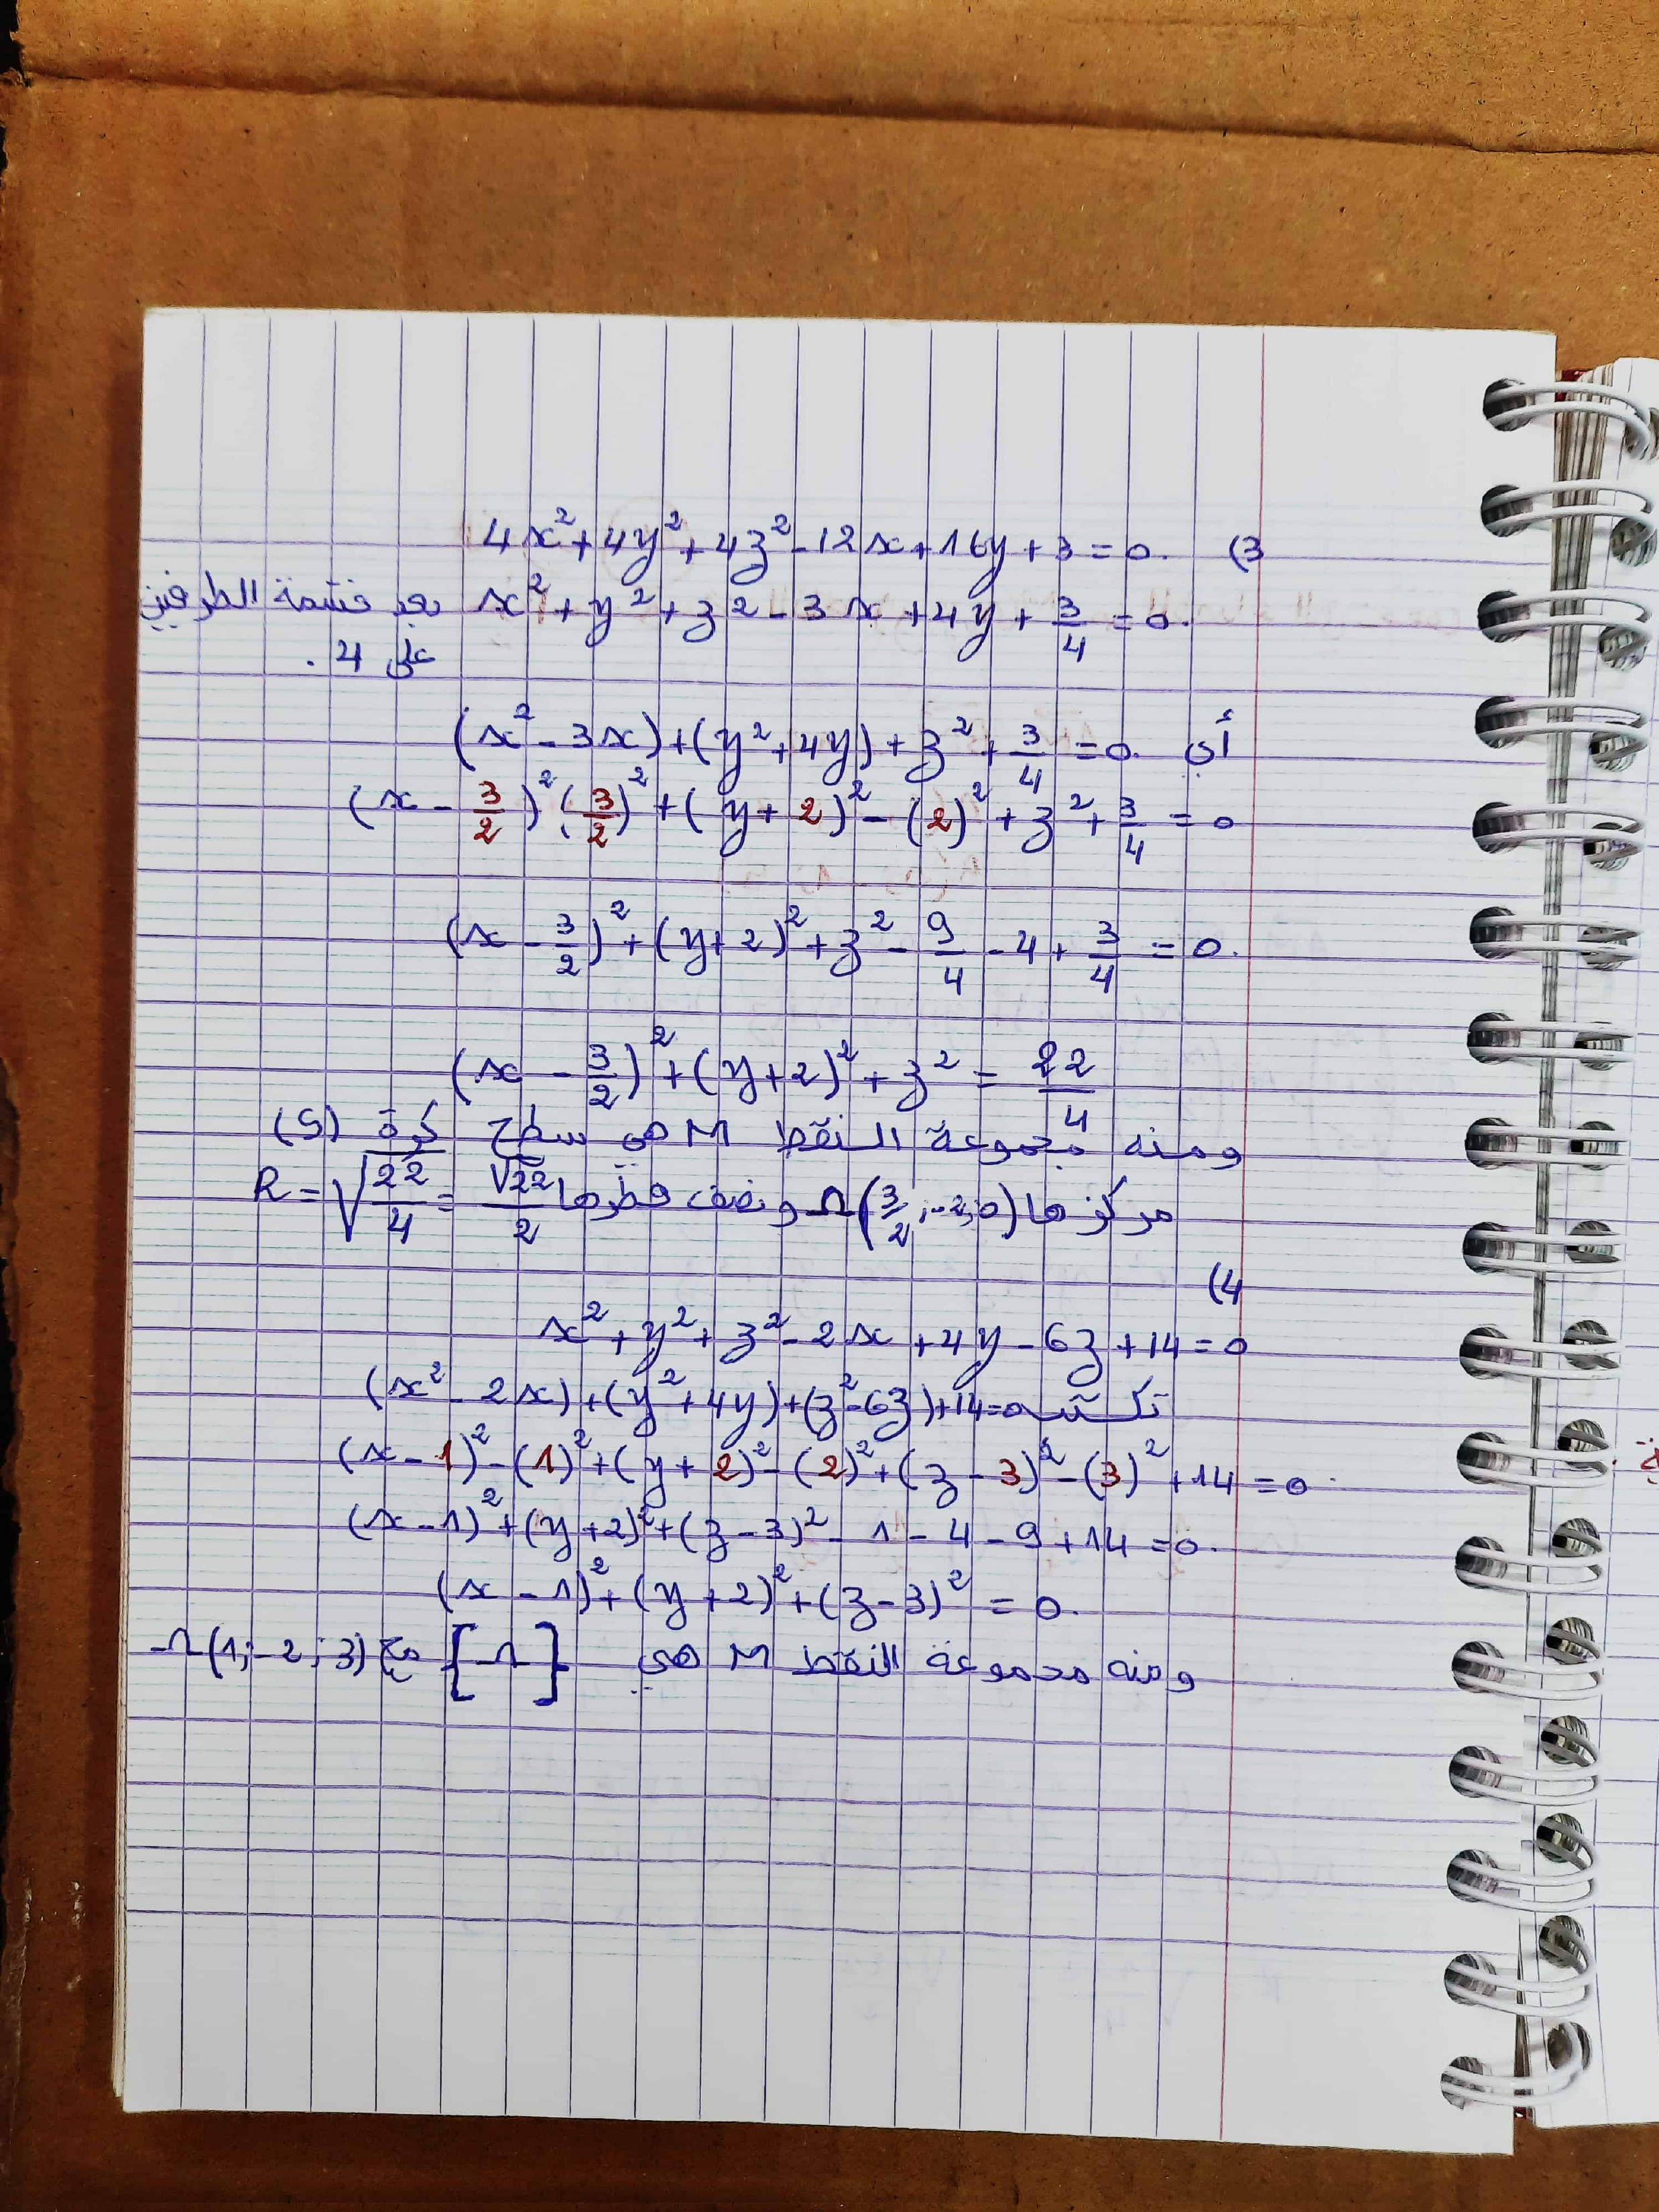 3) 4x²+4y²+4z²-12x+16y+3=0.
x²+y²+z2-3x+4y+3/4=0. بعد قسمة الطرفين
على 4.
أي (x²-3x)+(y²+4y)+z²+3/4=0.
(x-3/2)²-(3/2)²+(y+2)²-(2)²+z²+3/4=0
(x-3/2)²+(y+2)²+z²-9/4-4+3/4=0.
(x-3/2)²+(y+2)²+z²=22/4
ومنه مجموعة النقط M هي سطح كرة (S)
مركزها Ω(3/2,-2,0) ونصف قطرها R=√(22/4)=√22/2
4)
x²+y²+z²-2x+4y-6z+14=0
تكتب (x²-2x)+(y²+4y)+(z²-6z)+14=0
(x-1)²-(1)²+(y+2)²-(2)²+(z-3)²-(3)²+14=0.
(x-1)²+(y+2)²+(z-3)²-1-4-9+14=0.
(x-1)²+(y+2)²+(z-3)²=0.
ومنه مجموعة النقط M هي {Ω} مع Ω(1;-2;3)